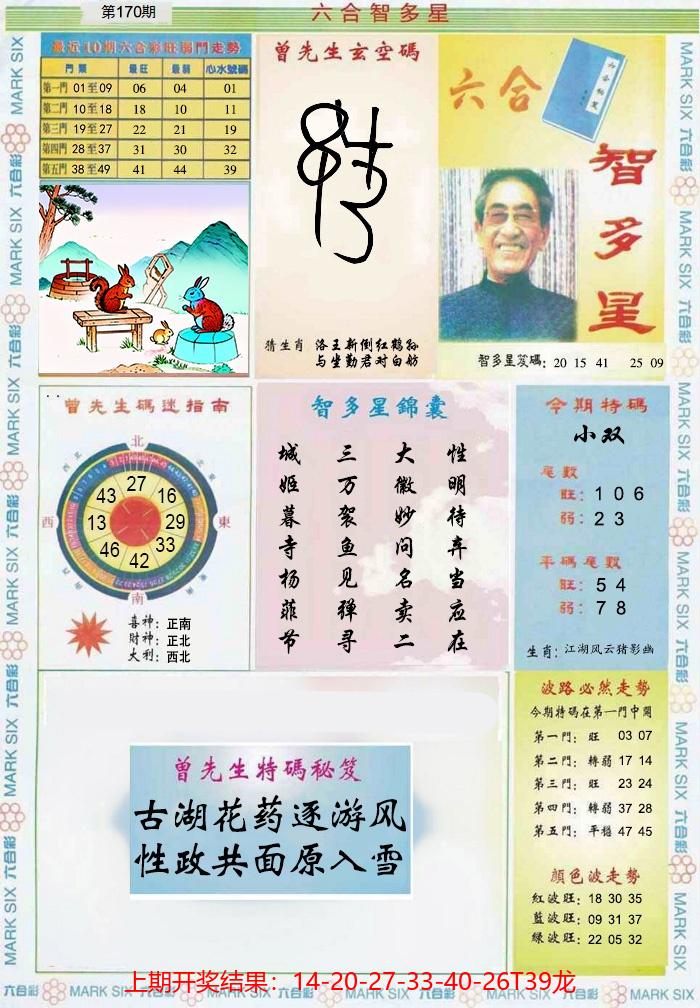 第170期
六合智多星
最近10期六合彩旺弱門走勢
門類 最旺 最弱 心水號碼
第一門 01至09 06 04 01
第二門 10至18 18 10 11
第三門 19至27 22 21 19
第四門 28至37 31 30 32
第五門 38至49 41 44 39
曾先生玄空碼
猜生肖 洛王新倒红鹤孙
与坐勤君对白舫
六合
智多星
智多星笈碼: 20 15 41 25 09
曾先生碼迷指南
北
西 東
南
27
43 16
13 29
46 33
42
喜神: 正南
財神: 正北
大利: 西北
智多星錦囊
城 三 大 性
姬 万 徽 明
暮 袈 妙 待
寺 鱼 问 弃
杨 见 名 当
菲 弹 卖 应
节 寻 二 在
今期特碼
小双
尾數
旺: 1 0 6
弱: 2 3
平碼尾數
旺: 5 4
弱: 7 8
生肖: 江湖风云猪影幽
曾先生特碼秘笈
古湖花药逐游风
性政共面原入雪
波路必然走勢
今期特碼在第一門中開
第一門: 旺 03 07
第二門: 轉弱 17 14
第三門: 旺 23 24
第四門: 轉弱 37 28
第五門: 平穩 47 45
顏色波走勢
紅波旺: 18 30 35
藍波旺: 09 31 37
綠波旺: 22 05 32
上期开奖结果：14-20-27-33-40-26T39龙
MARK SIX 六合彩